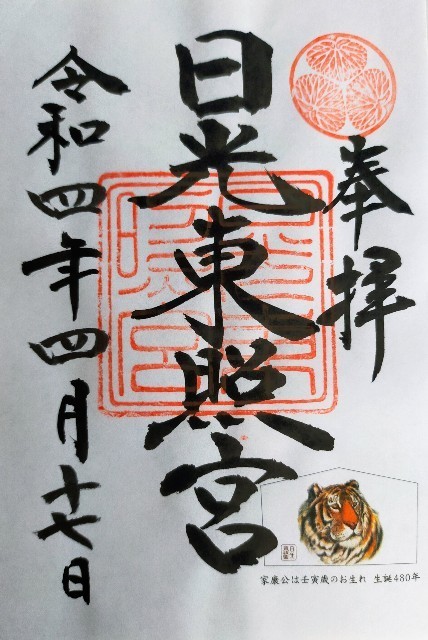 奉拝
日光東照宮
令和四年四月十七日
家康公は壬寅歳のお生れ 生誕480年